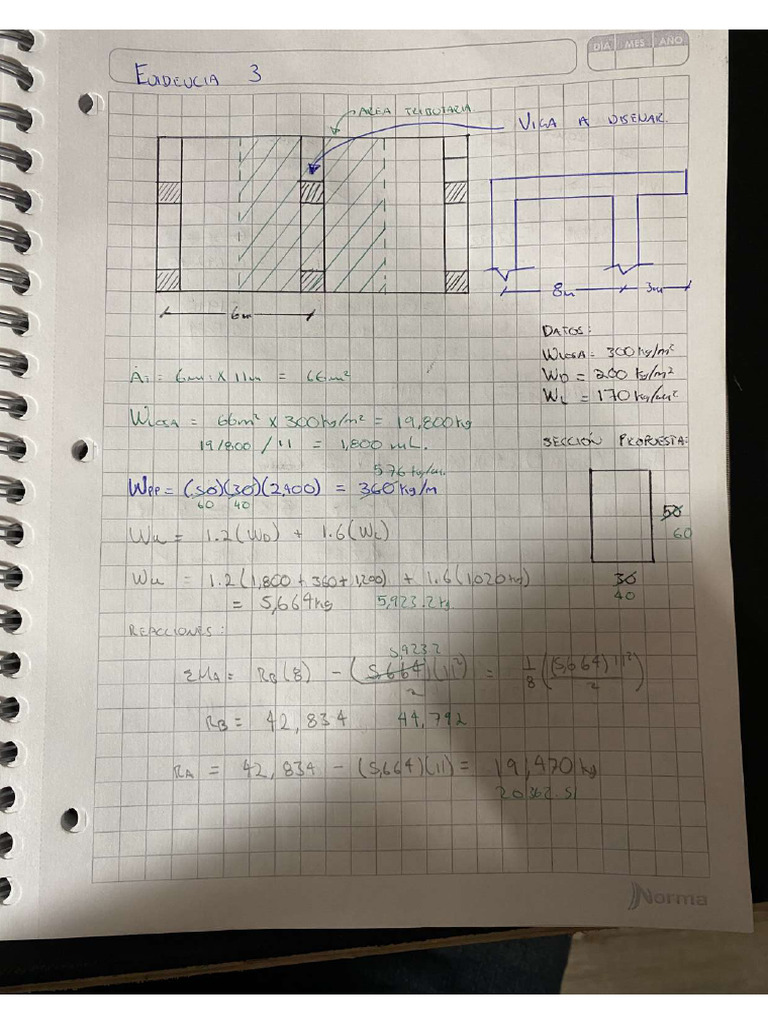 DÍA MES AÑO
EVIDENCIA 3
AREA TRIBUTARIA
VIGA A DISEÑAR
6m
8m
3m
DATOS:
WLOSA = 300 kg/m²
WD = 200 kg/m²
WL = 170 kg/m²
At = 6m × 11m = 66m²
WLOSA = 66m² × 300 kg/m² = 19,800kg
19,800 / 11 = 1,800 mL.
SECCIÓN PROPUESTA:
576 kg/m
WPP = (.50)(.30)(2,400) = 360 kg/m
60 40
50
60
30
40
Wu = 1.2(WD) + 1.6(WL)
Wu = 1.2(1,800 + 360 + 1,200) + 1.6(1020 kg)
= 5,664 kg 5,923.2 kg
REACCIONES:
5,923.2
ΣMA = RB(8) - (5,664)(11²)/2 = 1/8((5,664)11²/2)
RB = 42,834 44,792
RA = 42,834 - (5,664)(11) = 19,470 kg
20362.51
Norma